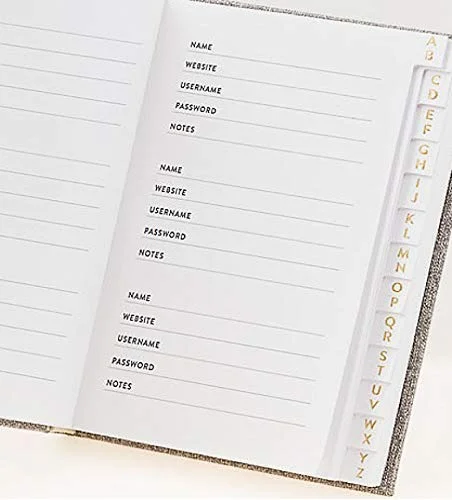 NAME
WEBSITE
USERNAME
PASSWORD
NOTES
NAME
WEBSITE
USERNAME
PASSWORD
NOTES
NAME
WEBSITE
USERNAME
PASSWORD
NOTES
A
B
C
D
E
F
G
H
I
J
K
L
M
N
O
P
Q
R
S
T
U
V
W
X
Y
Z